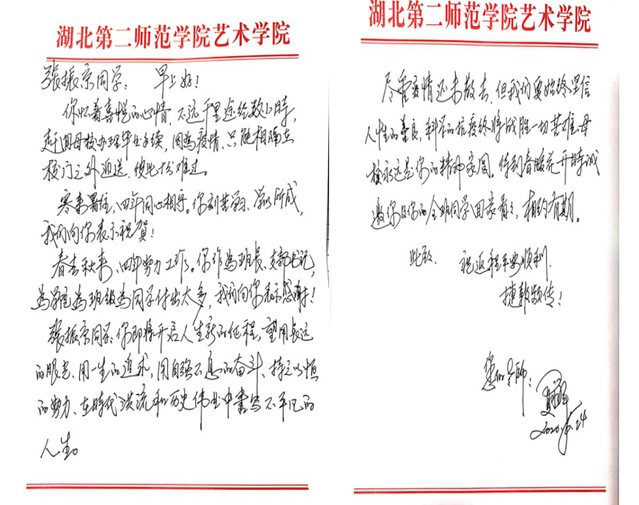 湖北第二师范学院艺术学院
张振京同学: 早上好!
你怀着喜悦的心情,不远千里途经数小时,
赶回母校办理毕业手续,因为疫情,只能相隔在
校门之外迎送,彼此倍难过。
寒来暑往,四年同心相守。你刻苦学习、学以所成,
我们向你表示祝贺!
春去秋来,四年努力工作。你作为班长、支部书记,
为学院为班级为同学付出太多,我们向你表示感谢!
张振京同学,你即将开启人生新的征程,望用长远
的眼光、用一生的追求、用自强不息的奋斗、持之以恒
的努力、在时代洪流和历史伟业中书写不平凡的
人生。
湖北第二师范学院艺术学院
尽管疫情还未散去,但我们要始终坚信
人性的善良,科学的抗疫终将战胜一切苦难。母
校永远是你的精神家园。待到春暖花开时,诚
邀你及你的全班同学回家看看,相约有期。
此致 祝返程平安顺利
捷报频传!
您的老师:
2020.5.24